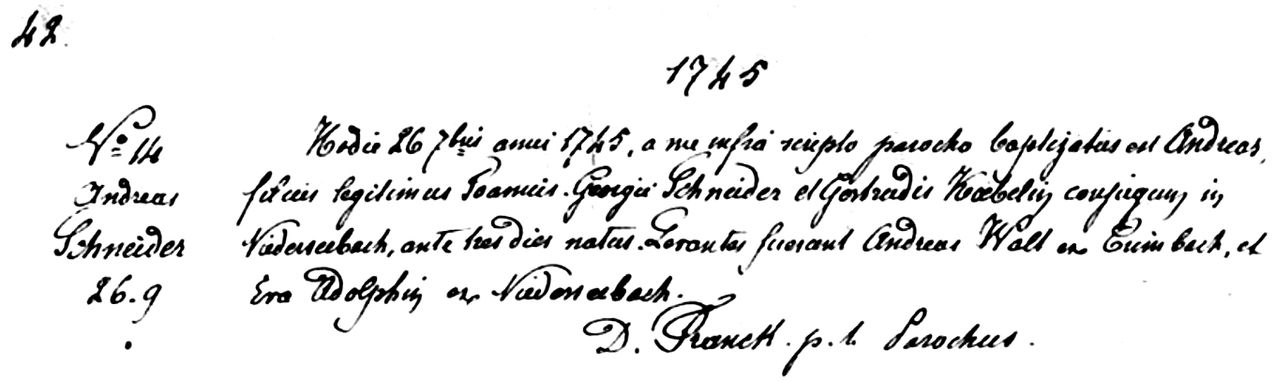 42.
1745
No. 14
Andreas
Schneider
26.9
Hodie 26 7bris anni 1745, a me infra scripto parocho baptizatus est Andreas,
filius legitimus Joannis Georgii Schneider et Gertrudis Hoebelin conjugum in
Niederseebach, ante tres dies natus. Levantes fuerunt Andreas Walt ex Trimbach, et
Eva Adolphin ex Niederseebach.
D. Franck. p. t. Parochus.